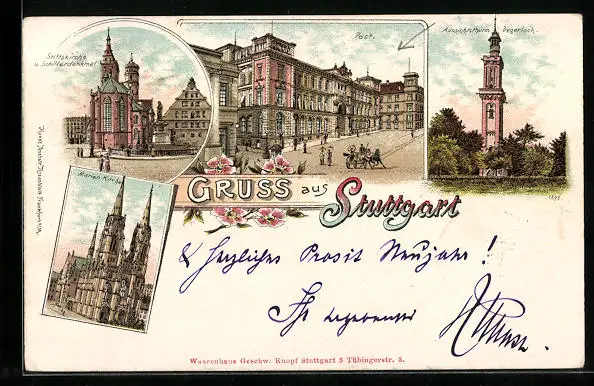 Stiftskirche
u. Schillerdenkmal
Post.
Aussichtsthurm Degerloch.
1895.
Marien-Kirche
GRUSS aus Stuttgart
& herzliches Prosit Neujahr!
Ihr ergebenster
Waarenhaus Geschw. Knopf Stuttgart 3 Tübingerstr. 3.